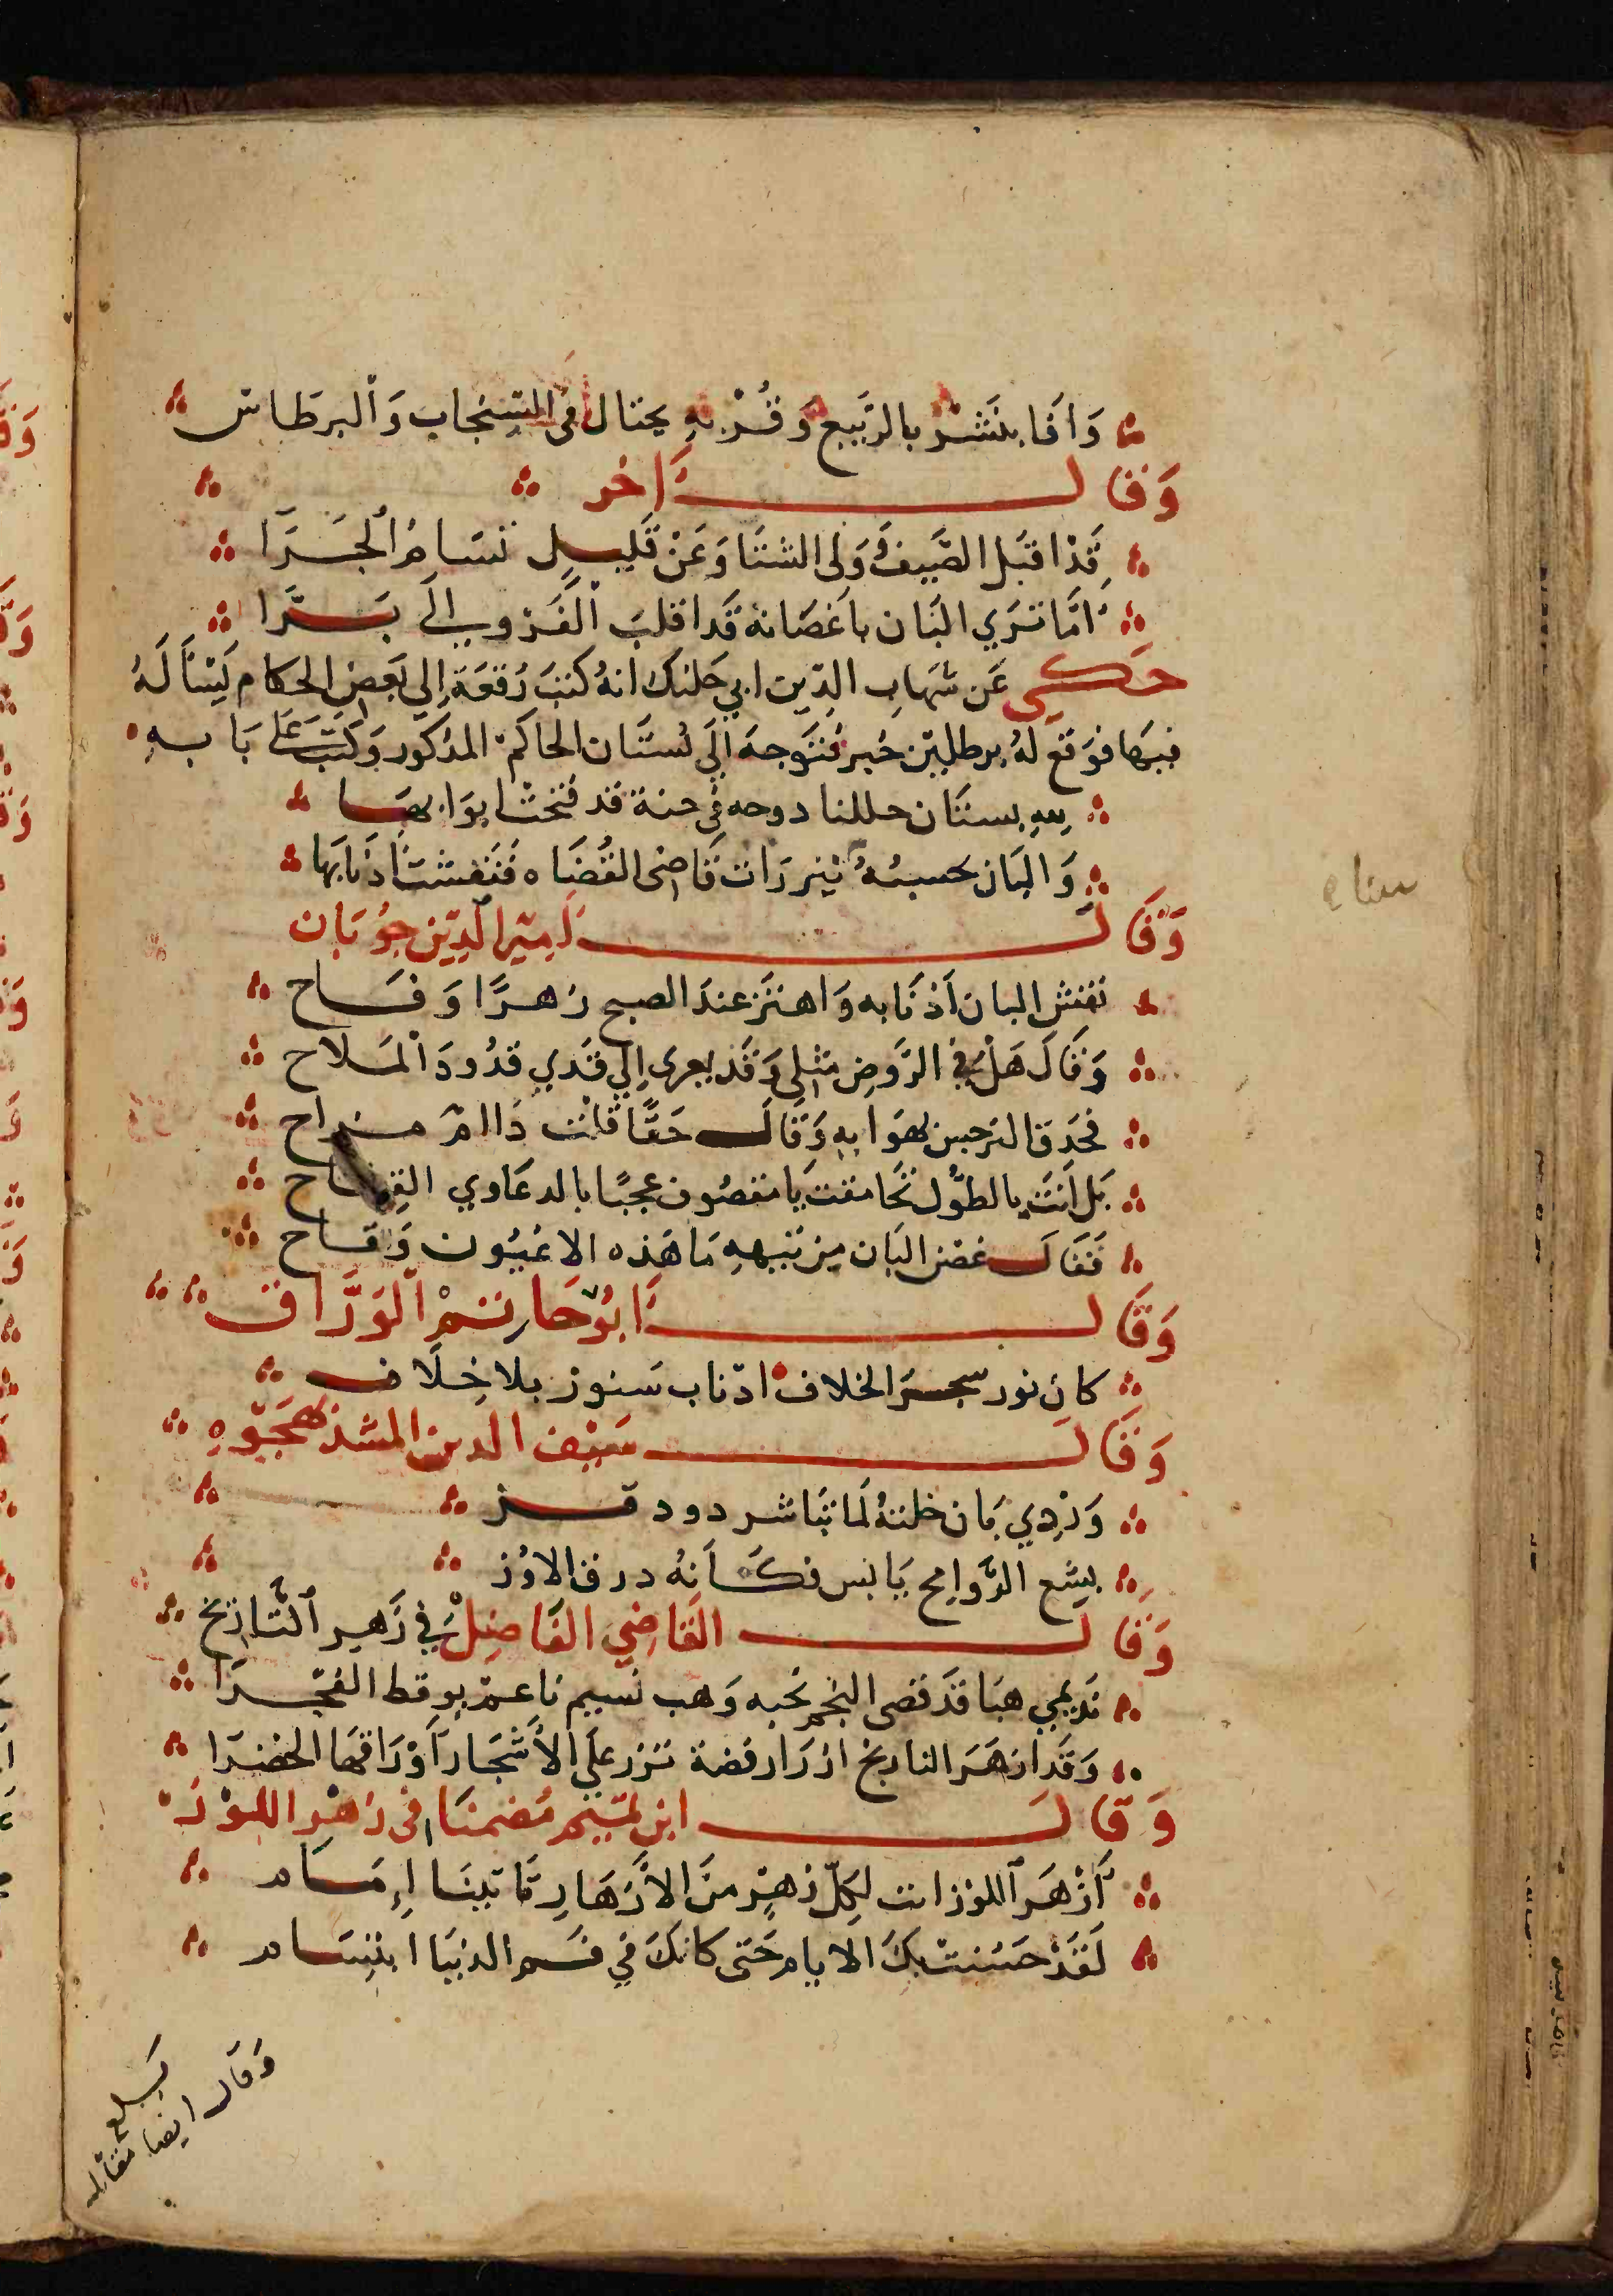 وَاَفَا بنَشْر بالرَّبيع وَقُرْبهِ يختال فى السِنجاب وَالبرطاس
وَقَالَ اَخر
قَدْ اقبَل الصَّيفُ وَولى الشتَا وَعَنْ قَليل تسَامُ الحَرَّا
امَّا تَرَي البَان باَغصَانهِ قَد اقلبَ الفَرْو الَى بَرَّا
حَكى عَن شهَاب الدّين ابي جَلنك انهُ كتبَ رُقعَة اِلى بَعض الحكام يَسْأَلهُ
فيهَا فوَقعَ لهُ برطلين خبر فتَوَجهَ اِلَى بُستَان الحاكم المذكور وَكتبَ عَلَى بَابهِ
للهِ بستَان حللنا دوحه فى جنة قد فتحت ابوَابهَا
وَالبَان تحسبهُ سَنَانير رَات قَاضى القُضَاه فَنَفشتْ اَذنَابهَا
وَقَالَ اَمِيْر الدِّيْن جُوْبَان
نفش البان اَذْنَابه وَاهتَز عندَ الصبح زهرًا وَفَاح
وَقَالَ هَلْ فِى الرَّوضِ مثلى وَقد يعزى اِلى قدي قدُودَ المَلَاح
فحَدق النرجس يهوَا بهِ وَقَالَ حَقًّا قلت ذَا امْ مزاح
بَل اَنتَ بالطوْل تحَامقت يَا مقصُوف عجبًا بالدعَاوي القباح
فَقَالَ غصن البَان مِن تيههِ مَا هَذه الا عُيُون وَقَاح
وَقَالَ اَبُوْحَا الوَرَّاق
كان نور سجر الخلاف اذناب سَنور بلا خِلَاف
وَقَالَ سَيْف الدين المشد يَهجَوهِ
وَرْدِي بَان خلتهُ لمَا تبَاشر دود قز
بشع الرَّوايح يَابس فكَاَنهُ درق الاوز
وَقَالَ القَاضِي الفَاضِلْ فِي زَهِر النَّارنج
نَديمي هبَا قَد قضى النجم نحبه وَهب نَسيم نَاعم يوقط الفجرَا
وَقَد ازهَرَ النارنج ازرَار فضة تزر على الأشجَار اَوْرَاقهَا الخضرَا
وَقَالَ ابن تميم مُضمنَا فى زهْر اللوْز
اَزْهَر اللوْز انت لِكلّ زهْر منَ الأزهَارِ تَاتينَا اِمَام
لَقَدْ حَسُنت بكَ الايام حَتى كانكَ فِي فَم الدنيَا ابتسَام
وَقال ايضا